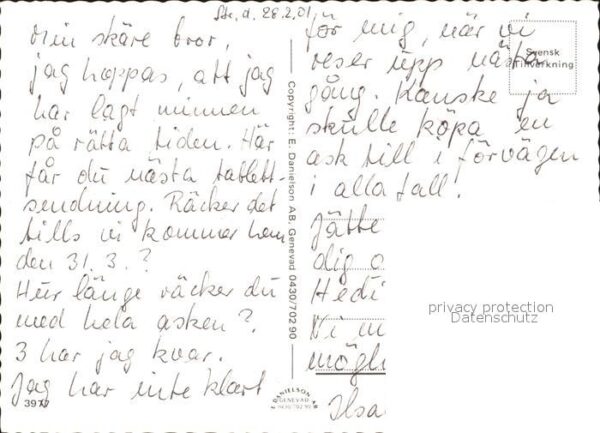 d. 28.2.01
Min skäre bror,
jag hoppas, att jag
har lagt minnen
på rätta tiden. Här
får du nästa tablett-
sendning. Räcker det
tills vi kommer hem
den 31.3.?
Hur länge räcker du
med hela asken?
3 har jag kvar.
Jag har inte klart
3977
Copyright: E. Danielson AB, Genevad 0430/702 90
DANIELSON AB
GENEVAD
0430/702 90
för mig, när vi
reser upp nästa
gång. Kanske ja
skulle köpa en
ask till i förvägen
i alla fall!
Jätte
dig
Hedi
Vi m
mögli
Ilsa
Svensk
Tillverkning
privacy protection
Datenschutz